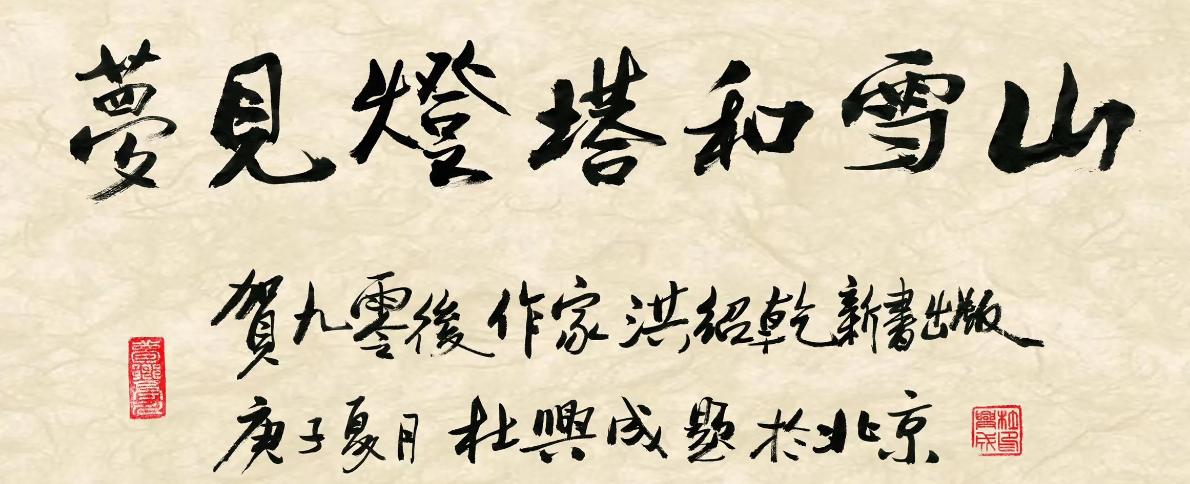 夢見燈塔和雪山
賀九零後作家洪紹乾新書出版
庚子夏月杜興成題於北京